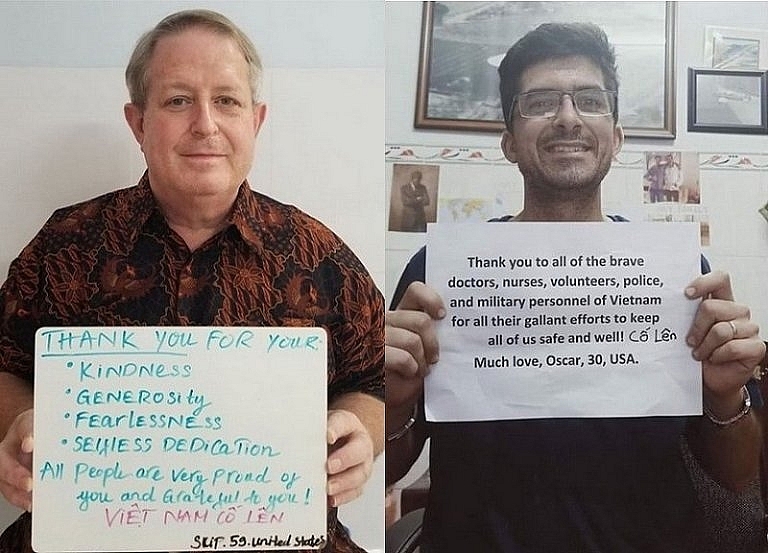 THANK YOU FOR YOUR:
• KINDNESS
• GENEROSITY
• FEARLESSNESS
• SELFLESS DEDICATION
All People are very Proud of
you and Grateful to you!
VIỆT NAM CỐ LÊN
59. United States
Thank you to all of the brave
doctors, nurses, volunteers, police,
and military personnel of Vietnam
for all their gallant efforts to keep
all of us safe and well! Cố Lên
Much love, Oscar, 30, USA.